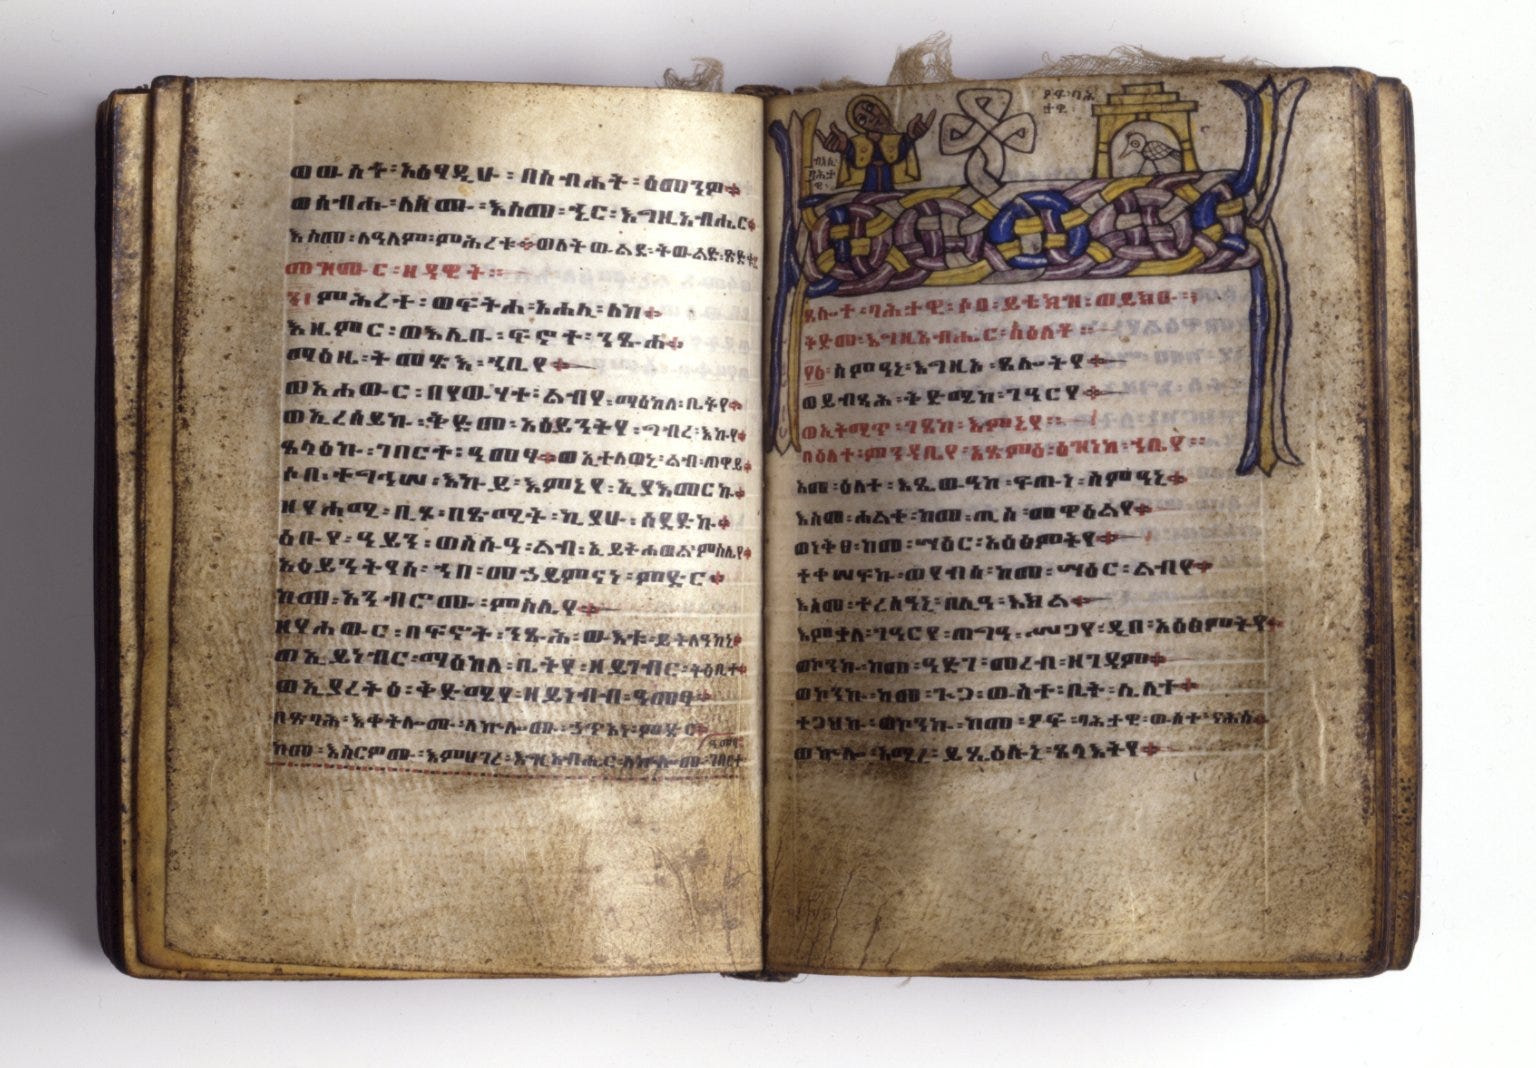 ወውስተ፡አዕፃዲሁ፡በስብሐት፡ዕመንዎ፨
ወሰብሑ፡ለስሙ፡እስመ፡ኄር፡እግዚአብሔር፨
እስመ፡ለዓለም፡ምሕረቱ፨ወለትውልደ፡ትውልድ፡ጽድቁ፨
መዝሙር፡ዘዳዊት።
፻፤ምሕረተ፡ወፍትሐ፡አሐሊ፡ለከ፨
እዜምር፡ወእሌቡ፡ፍኖተ፡ንጹሐ፨
ማዕዜ፡ትመጽእ፡ኀቤየ፨
ወአሐውር፡በየውሃተ፡ልብየ፡ማዕከለ፡ቤትየ፨
ወኢረሰይኩ፡ቅድመ፡አዕይንትየ፡ግብረ፡እኩየ፨
ጸላዕኩ፡ገበርተ፡ዓመፃ፨ወኢተለወኒ፡ልብ፡ጠዋይ፨
ሶበ፡ተግኅሠ፡እኩይ፡እምኔየ፡ኢያእመርኩ፨
ዘየሐሚ፡ቢጾ፡በጽሚት፡ኪያሁ፡ሰደድኩ፨
ዕቡየ፡ዓይን፡ወስሱዓ፡ልብ፡ኢይትሐወል፡ምስሌየ፨
አዕይንትየሰ፡ኀበ፡መሃይምናነ፡ምድር፨
ከመ፡አንብሮሙ፡ምስሌየ፨
ዘየሐውር፡በፍኖት፡ንጹሕ፡ውእቱ፡ይትለዓከኒ፨
ወኢይነብር፡ማዕከለ፡ቤትየ፡ዘይገብር፡ትዕቢተ፨
ወኢያረትዕ፡ቅድሜየ፡ዘይነብብ፡ዓመፃ፨
በጽባሕ፡እቀትሎሙ፡ለኵሎሙ፡ኃጥኣነ፡ምድር፨
ከመ፡እሰርዎሙ፡እምሀገረ፡እግዚአብሔር፡ለኵሎሙ፡ገበርተ፡ዓመፃ፨
ብእሲ፡
ባሕታ
ዊ፡
ዖፍ፡ባሕ
ታዊ፡
ጸሎተ፡ባሕታዊ፡ሶበ፡ይቴክዝ፡ወይክዑ።
ቅድመ፡እግዚአብሔር፡ስዕለቶ።
፻፩፡ስምዓኒ፡እግዚኦ፡ጸሎትየ፨
ወይብጻሕ፡ቅድሜከ፡ገዓርየ፨
ወኢትሚጥ፡ገጸከ፡እምኔየ።
በዕለተ፡ምንዳቤየ፡አጽምዕ፡ዕዝነከ፡ኀቤየ።
አመ፡ዕለተ፡እጼውዓከ፡ፍጡነ፡ስምዓኒ፨
እስመ፡ሐልቀ፡ከመ፡ጢስ፡መዋዕልየ፨
ወነቅፀ፡ከመ፡ሣዕር፡አዕፅምትየ፨
ተቀሠፍኩ፡ወየብሰ፡ከመ፡ሣዕር፡ልብየ፨
እስመ፡ተረስዓኒ፡በሊዓ፡እክል፨
እምቃለ፡ገዓርየ፡ጠግዓ፡ሥጋየ፡ዲበ፡አዕፅምትየ፨
ወኮንኩ፡ከመ፡ዓድገ፡መረብ፡ዘገዳም፨
ወኮንኩ፡ከመ፡ጉጋ፡ውስተ፡ቤት፡ሌሊተ፨
ተጋህኩ፡ወኮንኩ፡ከመ፡ዖፍ፡ባሕታዊ፡ውስተ፡ናሕስ፨
ወኵሎ፡አሚረ፡ይጼዕሉኒ፡ጸላእትየ፨